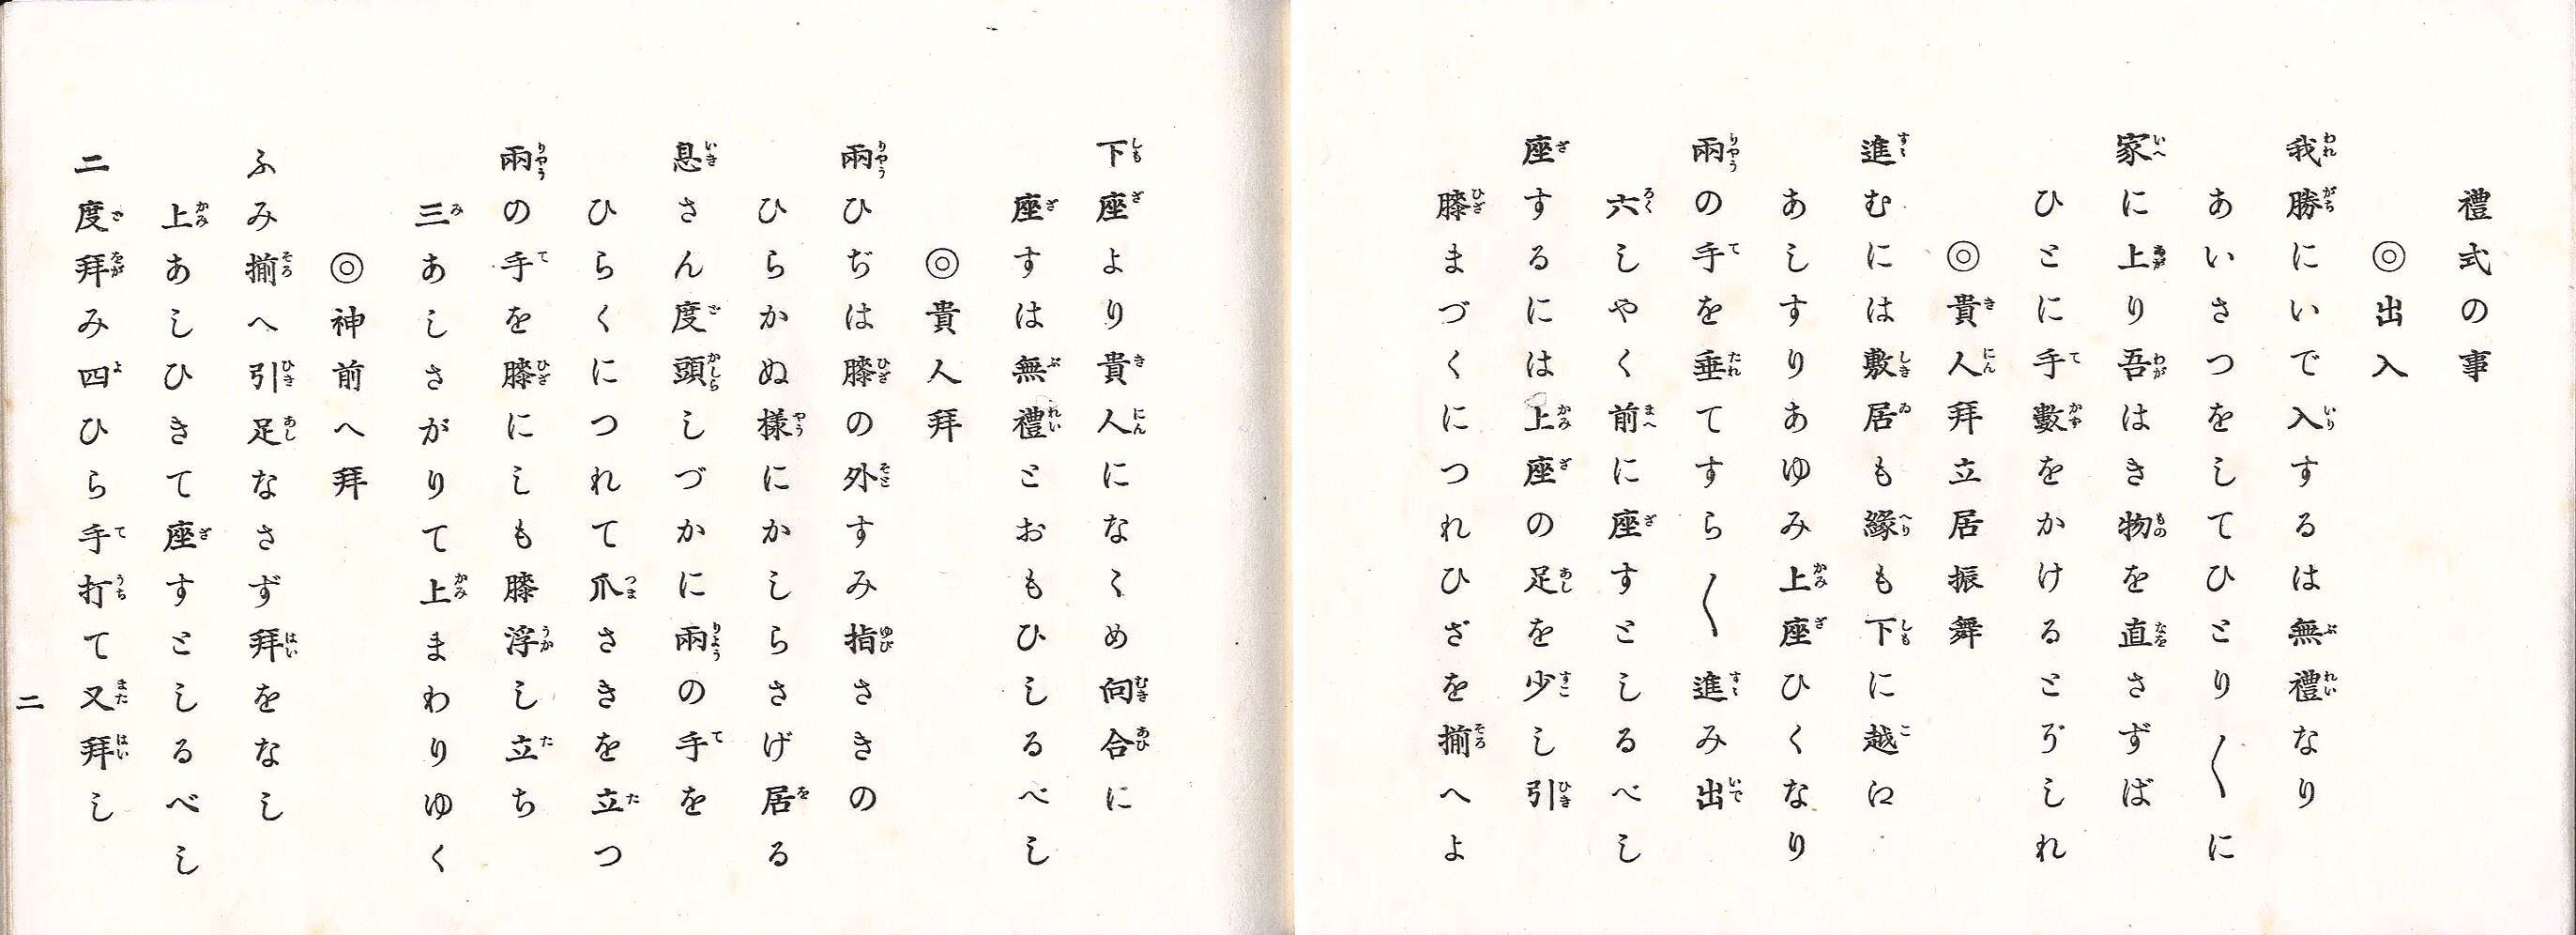 禮式の事
◎出入
我勝にいで入するは無禮なり
あいさつをしてひとり〱に
家に上り吾はき物を直さずば
ひとに手數をかけるとゞしれ
◎貴人拜立居振舞
進むには敷居も緣も下に越に
あしすりあゆみ上座ひくなり
兩の手を垂てすら〱進み出
六しやく前に座すとしるべし
座するには上座の足を少し引
膝まづくにつれひざを揃へよ
下座より貴人になくめ向合に
座すは無禮とおもひしるべし
◎貴人拜
兩ひぢは膝の外すみ指さきの
ひらかぬ樣にかしらさげ居る
息さん度頭しづかに兩の手を
ひらくにつれて爪さきを立つ
兩の手を膝にしも膝浮し立ち
三あしさがりて上まわりゆく
◎神前へ拜
ふみ揃へ引足なさず拜をなし
上あしひきて座すとしるべし
二度拜み四ひら手打て又拜し
二